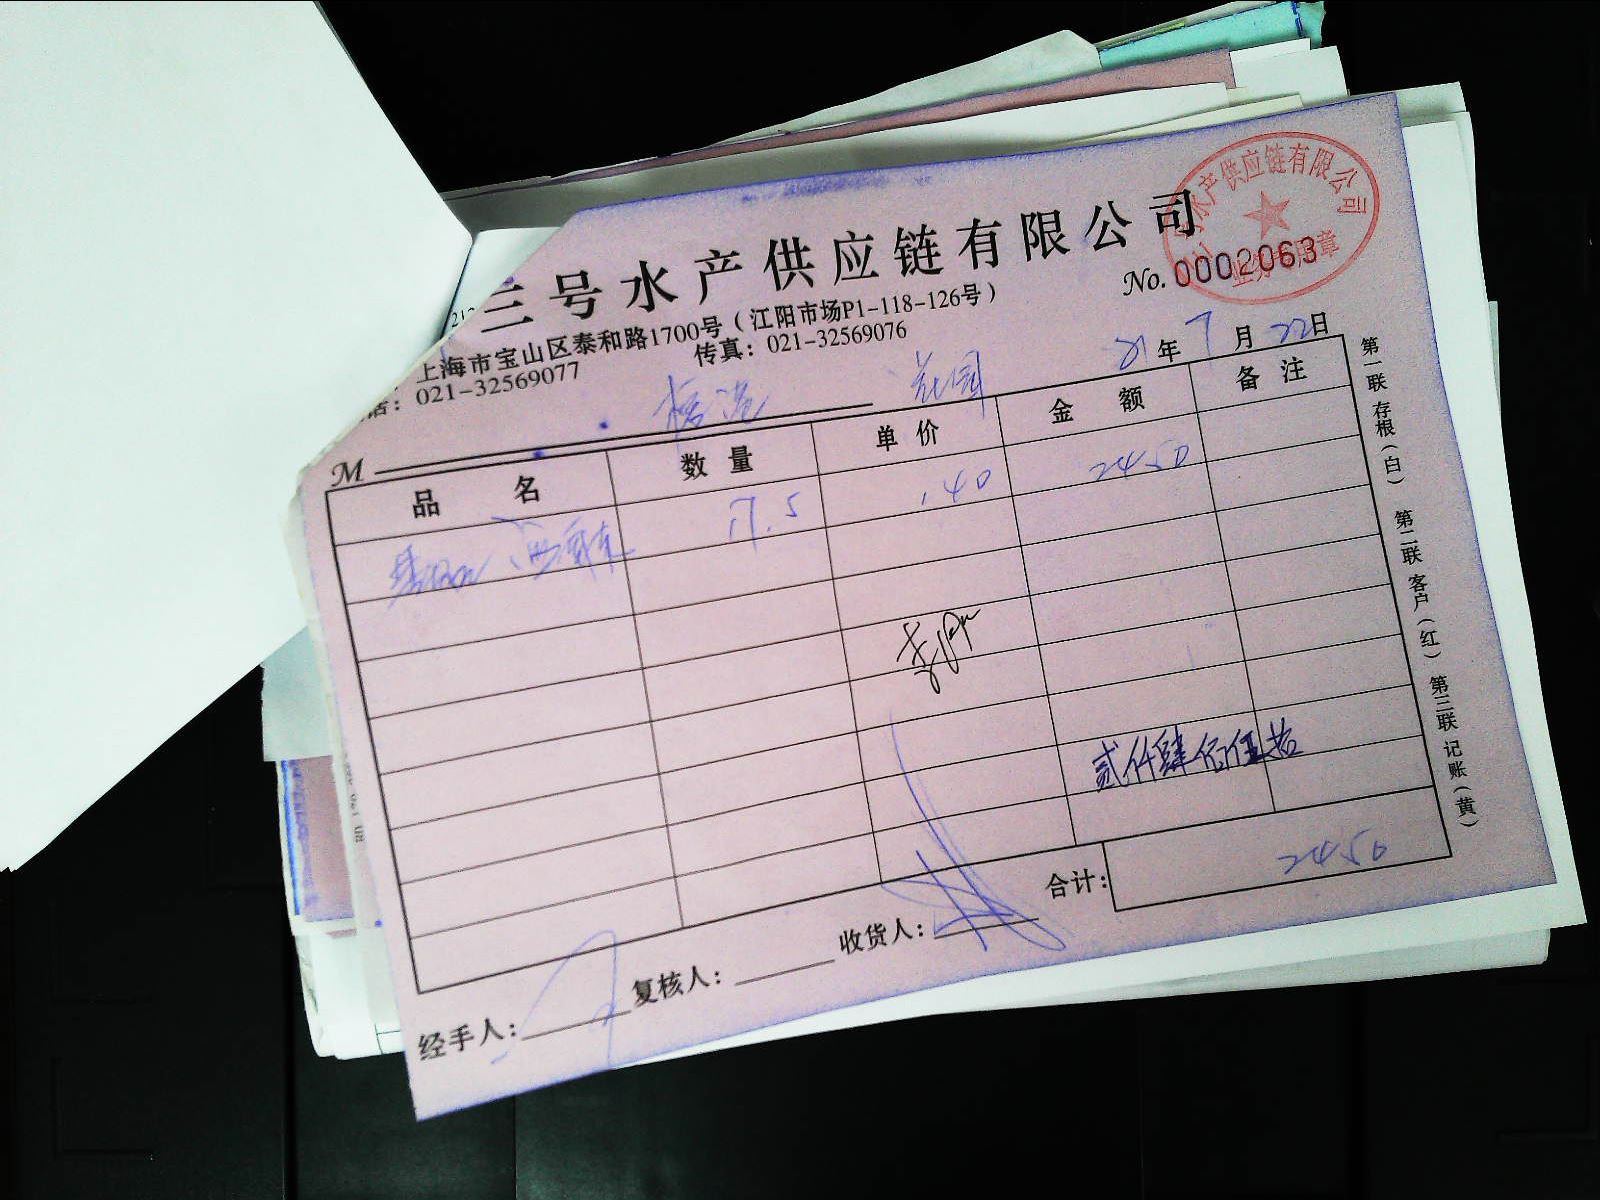 三号水产供应链有限公司
No. 0002063
水产供应链有限公司
上海市宝山区泰和路1700号（江阳市场P1-118-126号）
021-32569077 传真：021-32569076
21年7月22日
M
品名 数量 单价 金额 备注
17.5 140 2450
贰仟肆佰伍拾
合计： 2450
经手人： 复核人： 收货人：
第一联 存根（白） 第二联 客户（红） 第三联 记账（黄）